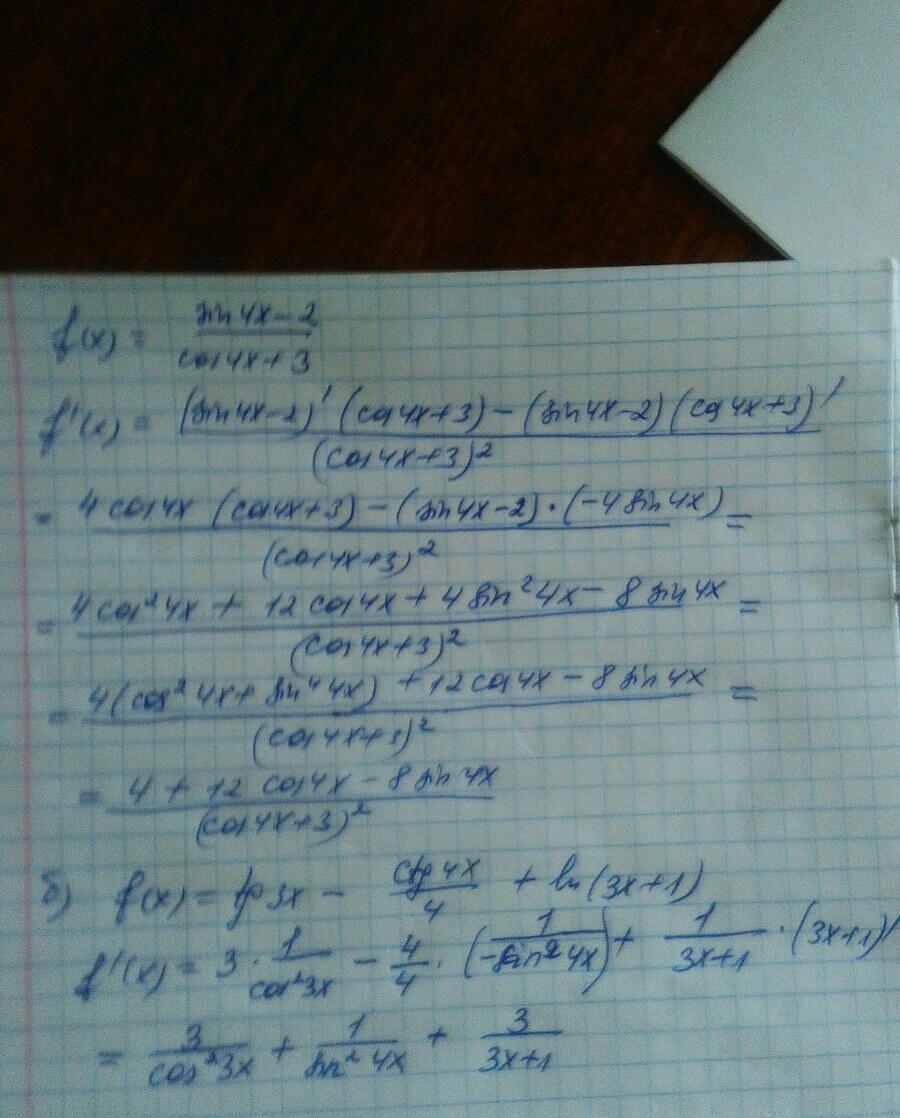 f(x) = (sin 4x − 2)/(cos 4x + 3)
f'(x) = ((sin 4x − 2)' (cos 4x + 3) − (sin 4x − 2) (cos 4x + 3)')/(cos 4x + 3)²
= (4 cos 4x (cos 4x + 3) − (sin 4x − 2) · (−4 sin 4x))/(cos 4x + 3)² =
= (4 cos² 4x + 12 cos 4x + 4 sin² 4x − 8 sin 4x)/(cos 4x + 3)² =
= (4 (cos² 4x + sin⁴ 4x) + 12 cos 4x − 8 sin 4x)/(cos 4x + 3)² =
= (4 + 12 cos 4x − 8 sin 4x)/(cos 4x + 3)²
б) f(x) = tg 3x − ctg 4x/4 + ln (3x + 1)
f'(x) = 3 · 1/cos² 3x − 4/4 · (1/−sin² 4x) + 1/(3x + 1) · (3x + 1)'
= 3/cos² 3x + 1/sin² 4x + 3/(3x + 1)